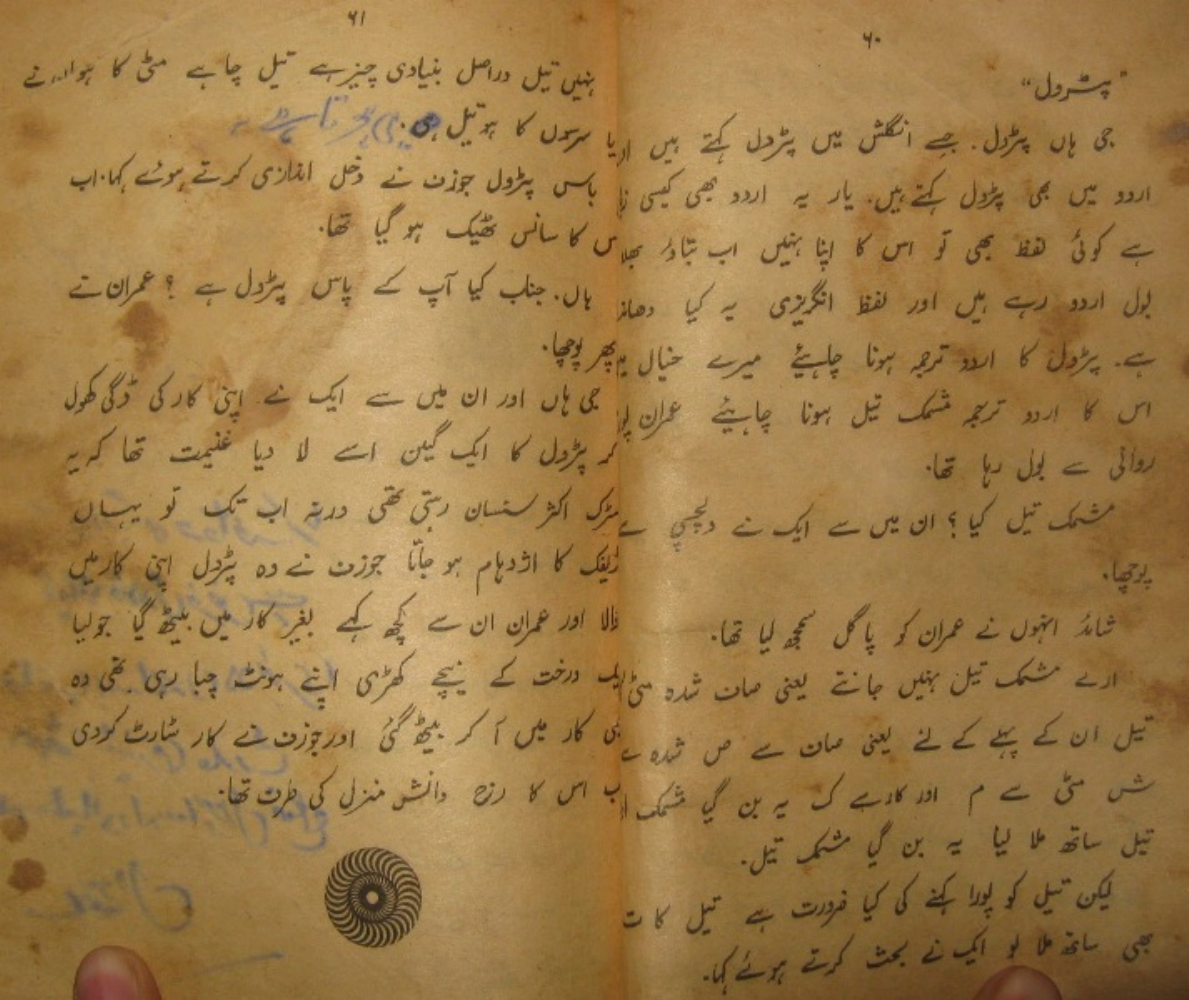 ۶۰
"پٹرول"
جی ہاں پٹرول. جسے انگلش میں پٹرول کہتے ہیں اور
اردو میں بھی پٹرول کہتے ہیں. یار یہ اردو بھی کیسی
ہے کوئی لفظ بھی تو اس کا اپنا نہیں اب بتاؤ بھلا
بول اردو رہے ہیں اور لفظ انگریزی یہ کیا
ہے. پٹرول کا اردو ترجمہ ہونا چاہیئے میرے خیال
اس کا اردو ترجمہ مشمک تیل ہونا چاہیئے عمران
روانی سے بول رہا تھا.
مشمک تیل کیا ؟ ان میں سے ایک نے دلچسپی سے
پوچھا.
شائد انہوں نے عمران کو پاگل سمجھ لیا تھا.
ارے مشمک تیل نہیں جانتے یعنی صاف شدہ مٹی
تیل ان کے پہلے کے لئے یعنی صاف سے ص شدہ سے
ش مٹی سے م اور کارہے ک یہ بن گیا مشمک
تیل ساتھ ملا لیا یہ بن گیا مشمک تیل.
لیکن تیل کو پورا کہنے کی کیا ضرورت ہے تیل کا ت
بھی ساتھ ملا لو ایک نے بحث کرتے ہوئے کہا.
۶۱
نہیں تیل دراصل بنیادی چیز ہے تیل چاہے مٹی کا ہو
یا سرسوں کا ہو تیل ہی
باس پٹرول جوزف نے دخل اندازی کرتے ہوئے کہا. اب
اس کا سانس ٹھیک ہو گیا تھا.
ہاں. جناب کیا آپ کے پاس پٹرول ہے ؟ عمران نے
پھر پوچھا.
جی ہاں اور ان میں سے ایک نے اپنی کار کی ڈگی کھول
کر پٹرول کا ایک گیلن اسے لا دیا غنیمت تھا کہ یہ
سڑک اکثر سنسان رہتی تھی ورنہ اب تک تو یہاں
ٹریفک کا اژدہام ہو جاتا جوزف نے وہ پٹرول اپنی کار میں
ڈالا اور عمران ان سے کچھ کہے بغیر کار میں بیٹھ گیا جولیا
ایک درخت کے نیچے کھڑی اپنے ہونٹ چبا رہی تھی وہ
بھی کار میں آ کر بیٹھ گئی اور جوزف نے کار سٹارٹ کر دی
اب اس کا رخ دانش منزل کی طرف تھا.